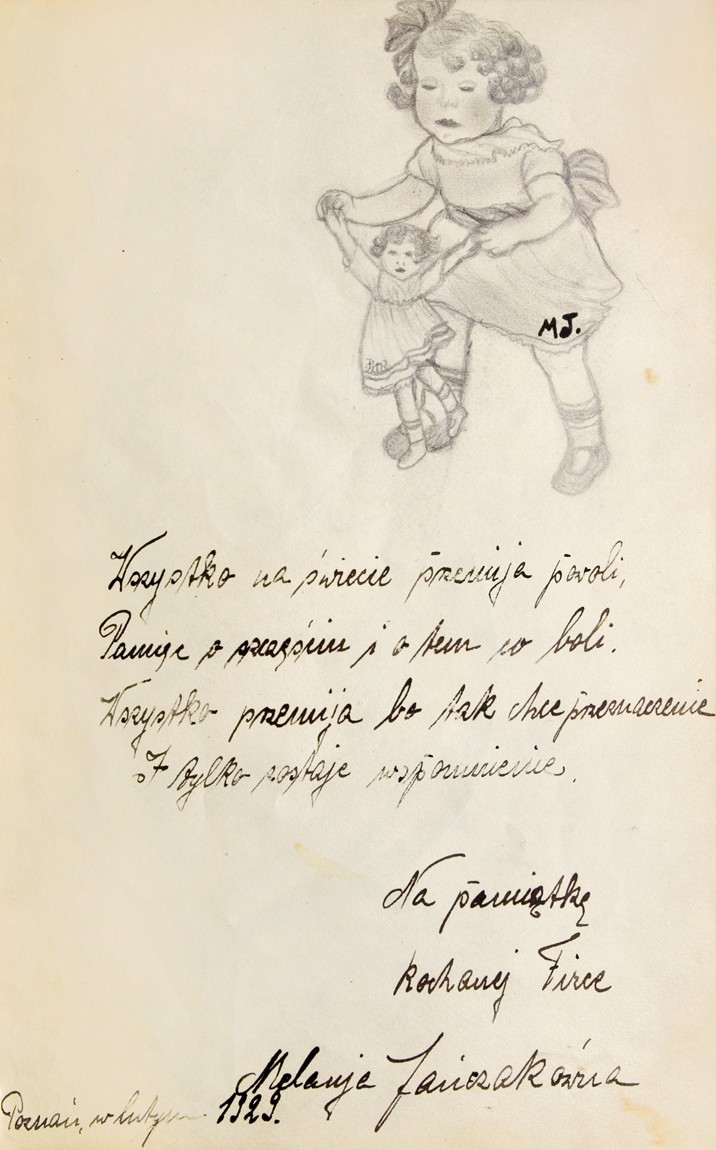 MJ.
Wszystko na świecie przemija powoli,
Pamięć o szczęściu i o tem co boli.
Wszystko przemija bo tak chce przeznaczenie
I tylko zostaje wspomnienie.
Na pamiątkę
kochanej Firce
Melanja Jańczakówna
Poznań, w lutym 1929.